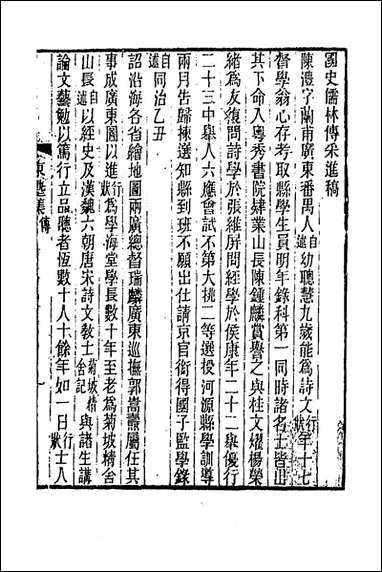 國史儒林傳采進稿
陳澧字蘭甫廣東番禺人自述幼聰慧九歲能爲詩文行狀年十七
督學翁心存考取縣學生員明年錄科第一同時諸名士皆出
其下命入粵秀書院肄業山長陳鍾麟賞譽之與桂文燿楊榮
緒爲友復問詩學於張維屏問經學於侯康年二十二舉優行
二十三中舉人六應會試不第大挑二等選授河源縣學訓導
兩月告歸揀選知縣到班不願出仕請京官銜得國子監學錄
自述同治乙丑
詔沿海各省繪地圖兩廣總督瑞麟廣東巡撫郭嵩燾屬任其
事成廣東圖以進行狀爲學海堂學長數十年至老爲菊坡精舍
山長自述以經史及漢魏六朝唐宋詩文教士菊坡精舍記與諸生講
論文藝勉以篤行立品聽者恆數十人十餘年如一日行狀士人
東塾集 傳